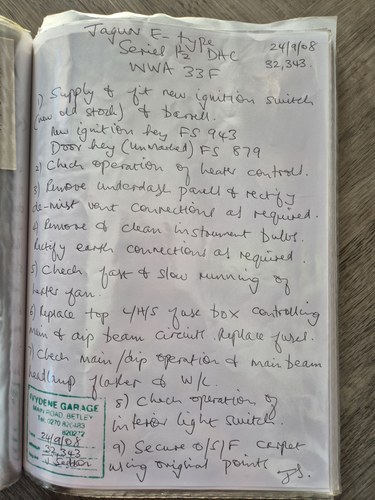 Jaguar E-type
Series 1½ DHC
24/9/08
WWA 33F
32,343.
1) Supply & fit new ignition switch
(new old stock) & barrell.
New ignition key FS 943
Door key (unmarked) FS 879
2) Check operation of heater controll.
3) Remove underdash panell & rectify
de-mist vent connections as required.
4) Remove & clean instrument bulbs.
Rectify earth connections as required.
5) Check fast & slow running of
heater fan.
6) Replace top L/H/S fuse box controlling
main & dip beam circuits. Replace fuses.
7) Check main/dip operation & main beam
headlamp flasher & W/L.
8) Check operation of
interior light switch.
9) Secure O/S/F carpet
using original points
IVYDENE GARAGE
MAIN ROAD, BETLEY
Tel: 0270
820272
24/9/08
32,343